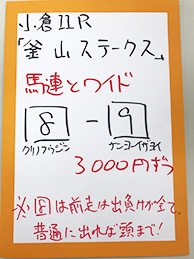 小倉11R
「釜山ステークス」
馬連とワイド
8 - 9
クリノフウジン ケンヨーイザヨイ
3000円ずつ
※8は前走は出負けが全て。
普通に出れば頭まで!